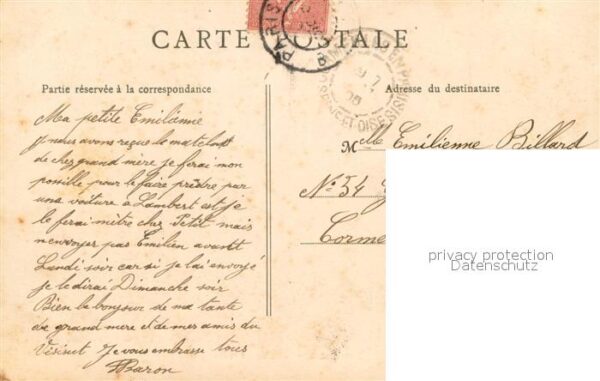 CARTE POSTALE
PARIS
CORMEILLES-EN-PARISIS
SEINE-ET-OISE
Partie réservée à la correspondance
Adresse du destinataire
Ma petite Emilienne
Je nous avons reçue le matelas
de chez grand mère je ferai mon
possille pour le faire prèdre par
une voiture à Lambert est je
le ferai mètre chez Petit mais
n'envoyer pas Emilien avant
Lundi soir car si je lai envoyé
je le dirai Dimanche soir
Bien le bonjour de ma tante
de grand mere et de mes amis du
Vésinet Je vous embrasse tous
Baron
Mlle Emilienne Billard
No 54
Corme
privacy protection
Datenschutz